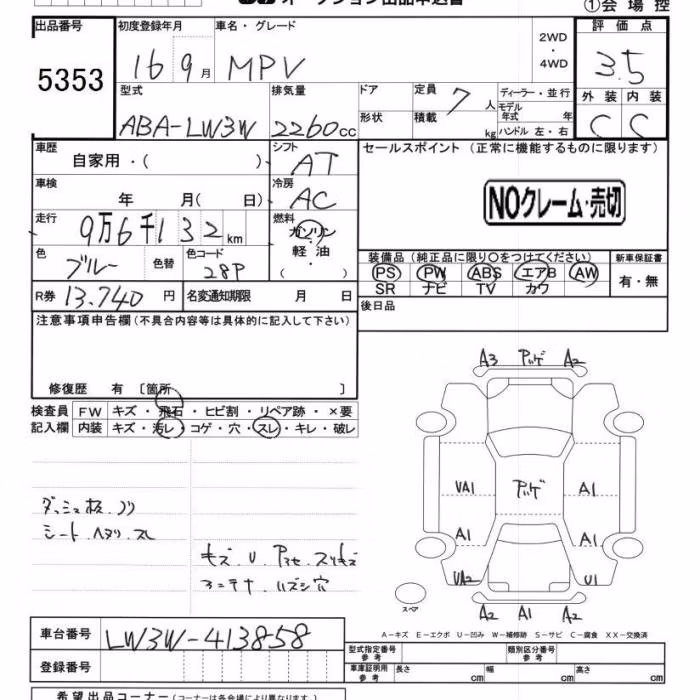 オークション出品申込書
①会場控
出品番号 初度登録年月 車名・グレード 2WD・4WD 評価点
5353 16 9月 MPV 3.5
型式 排気量 ドア 定員 7人 ディーラー・並行 外装 内装
ABA-LW3W 2260cc 形状 積載 kg モデル年式 年 ハンドル 左・右 C C
車歴 自家用・( ) シフト AT セールスポイント (正常に機能するものに限ります)
車検 年 月( 日) 冷房 AC
NOクレーム・売切
走行 9万6千132km 燃料 ガソリン・軽油・( )
色 ブルー 色替 色コード 28P
装備品 (純正品に限り○をつけてください) 新車保証書
PS PW ABS エアB AW 有・無
SR ナビ TV カワ
R券 13.740円 名変通知期限 月 日
後日品
注意事項申告欄(不具合内容等は具体的に記入して下さい)
修復歴 有 [箇所 ]
検査員 FW キズ・飛石・ヒビ割・リペア跡・×要
記入欄 内装 キズ・汚レ・コゲ・穴・スレ・キレ・破レ
A3 アッゲ A2
VA1 アッゲ A1
A1 A1
UA2 U1
スペア
A2 A1 A2
ダッシュ板 ノリ
シート ヘタリ スレ
キズ U スリキズ
アンテナ ハズシ穴
A-キズ E-エクボ U-凹み W-補修跡 S-サビ C-腐食 XX-交換済
車台番号 LW3W-413858
登録番号
型式指定番号 参考 類別区分番号 参考
車庫証明用 参考 長さ cm 幅 cm 高さ cm
希望出品コーナー(コーナーは各会場により異なります)